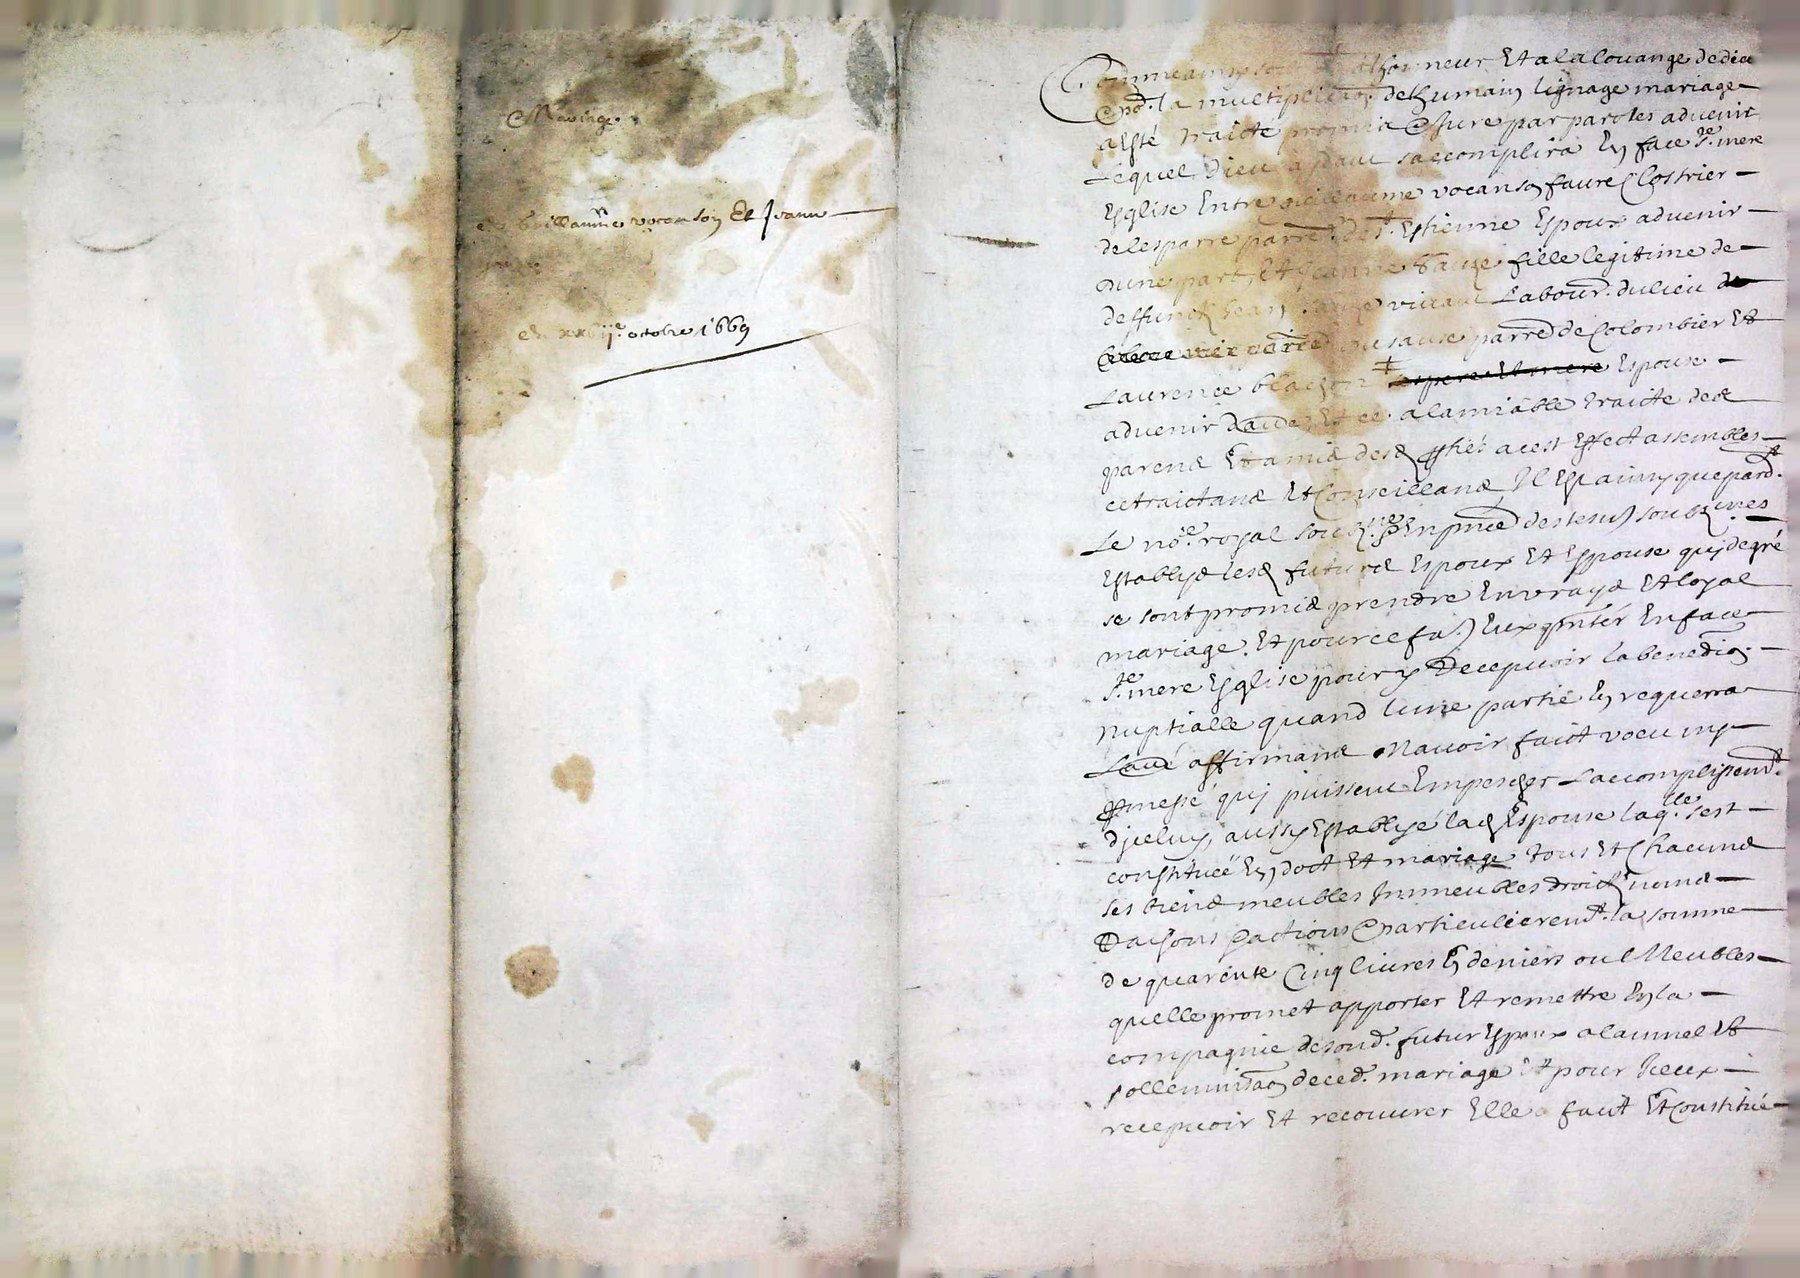 Mariage
de Guillaume vocanson Et Jeanne
du xxviije. octobre 1669
Comme ainsy soit lhonneur Et a la louange de dieu
Et la multiplicaon de humain lignage mariage
a esté traicté promis Et Jure par parolles advenir
Lequel Dieu aydant saccomplira En face Ste. mere
Esglise Entre Guillaume vocanson faure Clostrier
de lesparre parre. de St. Estienne Espoux advenir
dune part, Et Jeanne sauze fille legitime de
deffunct Jean sauze vivant Labour. du lieu de
du sause parre de Colombier Et
Laurence ‡ Espouse
advenir daude, Et ce a lamiable traicte des
parens Et amis desd. pties a cest Effect assembles
ce traictans Et Conseillans, Il Est ainsy que pardt.
Le noe. royal soubzne. Enpnce des tesm) soubznes
Establys lesd. futurs Espoux Et Espouse quj de gré
se sont promis prendre En vraye Et loyal
mariage. Et pour ce fe.) Eux pnter En face
Ste. mere Esglise pour y Recepuoir la benedion.
nuptialle quand lune partie En requerra
Laue affirmans Navoir faict voeu ny
pmesse quj puisse Empescher Laccomplissemt.
dJceluy, aussy Establye lad. Espouse laqlle. sest
constituée En dot Et mariage tous Et Chacuns
ses biens meubles Immeubles droictz noms
Raisons Et actions Et particulieremt. la somme
de quarente Cinq livres En deniers ou Meubles
quelle promet apporter Et remettre En la
compagnie de sond. futur Espoux a lannel Et
sollemnisaon de ced. mariage Et pour Jceux
recepuoir Et recouvrer Elle a faict Et Constitué